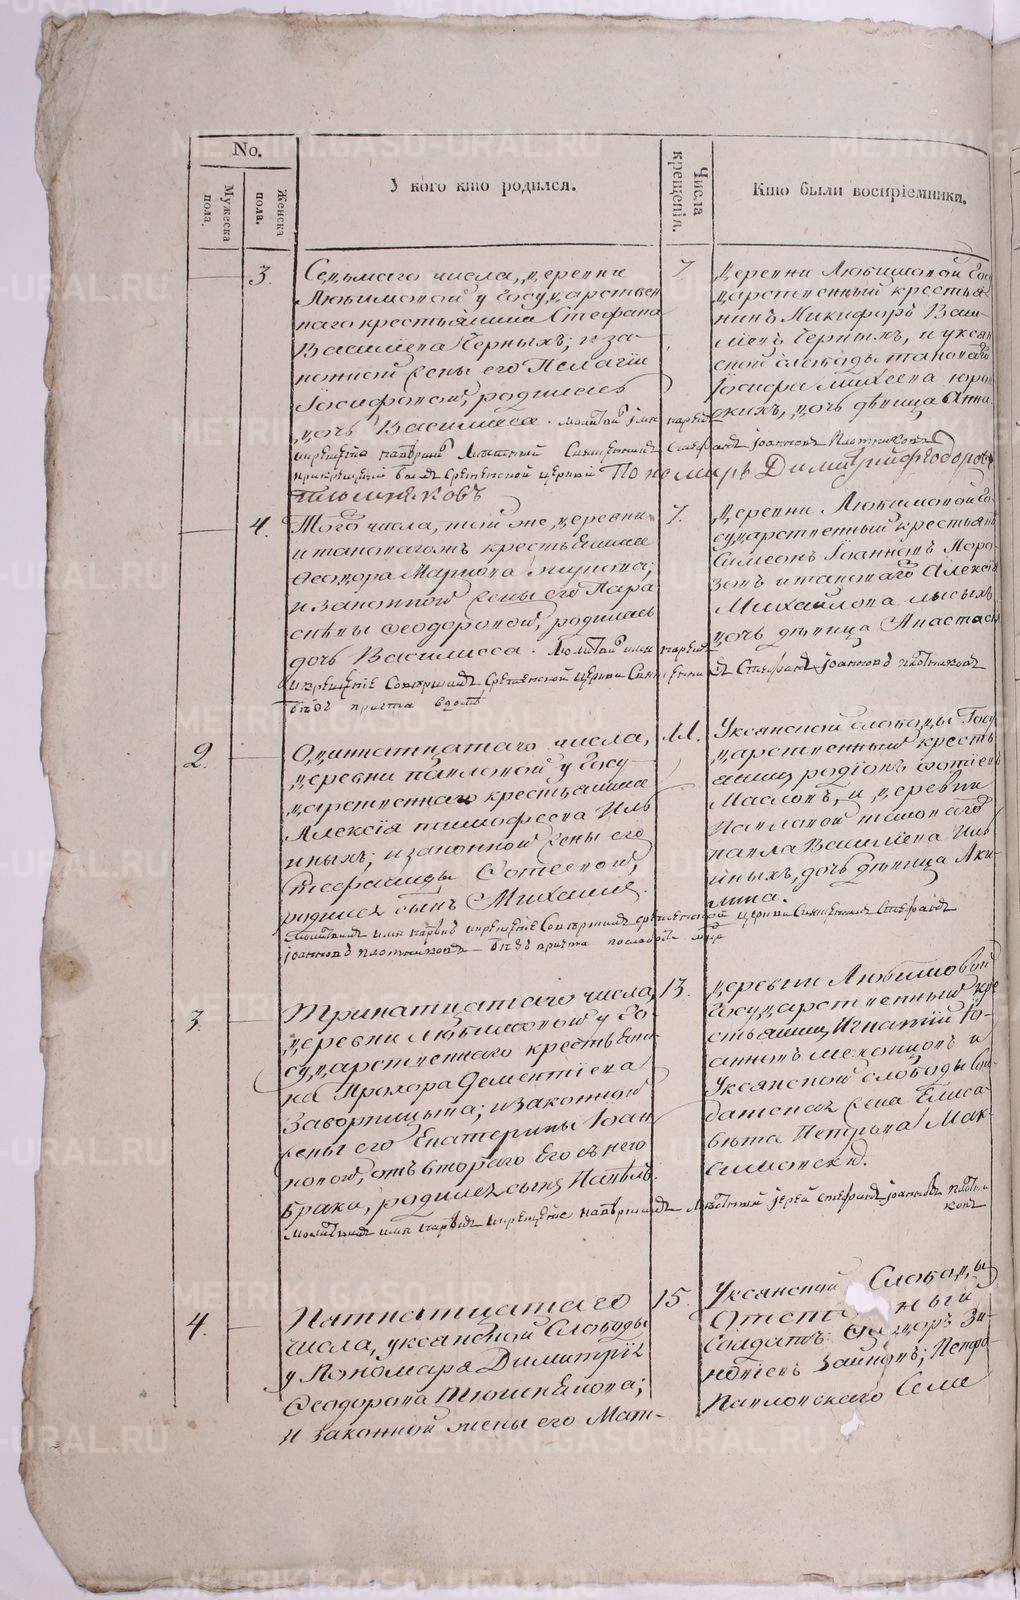 No.
Мужеска пола.
Женска пола.
У кого кто родился.
Числа крещенія.
Кто были воспріемники.
3.
Седьмаго числа, деревни
Любимовой у государствен
наго крестьянина Стефана
Василіева Черныхъ; и за-
конной жены его Пелагіи
Іосифовой, родилась
дочь Василиса. молитвой имя нареч
и крещеніе Священникъ Стефанъ Іоанновъ Плотниковъ
при крещеніи былъ Срѣтенской церкви Пономарь Димитрій Ѳеодоровъ
7.
Деревни Любимовой Госу
дарственный крестья
нинъ Никифоръ Васи
ліевъ Черныхъ, и уксян
ской слободы таковаго
Іосифа Михеева
дочь дѣвица Анна.
4.
Того числа, той же деревни
и таковагожъ крестьянина
Ѳеодора Маркова
и законной жены его Пара
скевы Ѳеодоровой, родилась
дочь Василисса. Молитвой имя нарече
и крещеніе Совершилъ Срѣтенской церкви Священникъ Стефанъ Іоанновъ Плотниковъ
безъ причта в домѣ
7.
Деревни Любимовой Го-
сударственный крестьянинъ
Симеонъ Іоанновъ Моро
зовъ и таковаго Алексія
Михайлова
дочь дѣвица Анастасія
2.
Одиннатцатаго числа,
деревни Павловой у Госу
дарственнаго крестьянина
Алексія Тимофеева Иль
иныхъ; и законной жены его
Стефаниды Фотеевой,
родился сынъ Михаилъ.
Молитвилъ имя нарекъ и крещеніе Совершилъ Срѣтенской церкви Священникъ Стефанъ
Іоанновъ Плотниковъ безъ причта
11.
Уксянской слободы Госу
дарственный кресть
янинъ Родіонъ Фотіевъ
Масловъ, и деревни
Павловой таковаго
Павла Василіева Иль
иныхъ, дочь дѣвица Аки
лина.
3.
Тринатцатаго числа,
деревни Любимовой у Го-
сударственнаго крестьяни
на Прохора Дементіева
и законной
жены его Екатерины Іоан
новой, отъ втораго его съ нею
брака, родился сынъ Павелъ.
Молитвилъ имя нарекъ и крещеніе Іерей Стефанъ Іоанновъ Плотни
ковъ
13.
Деревни Любимовой
Государственный кре
стьянинъ Игнатій Іо-
анновъ и
Уксянской слободы Сол
датская жена Елиса
вета Петрова Мак-
4.
Пятнатцатаго
числа, уксянской Слободы
у Пономаря Димитрія
Ѳеодорова
и законной жены его Мат-
15.
Уксянской Слободы
Солдатъ Зи
новіевъ Зайковъ; Петро-
Павловскаго Села